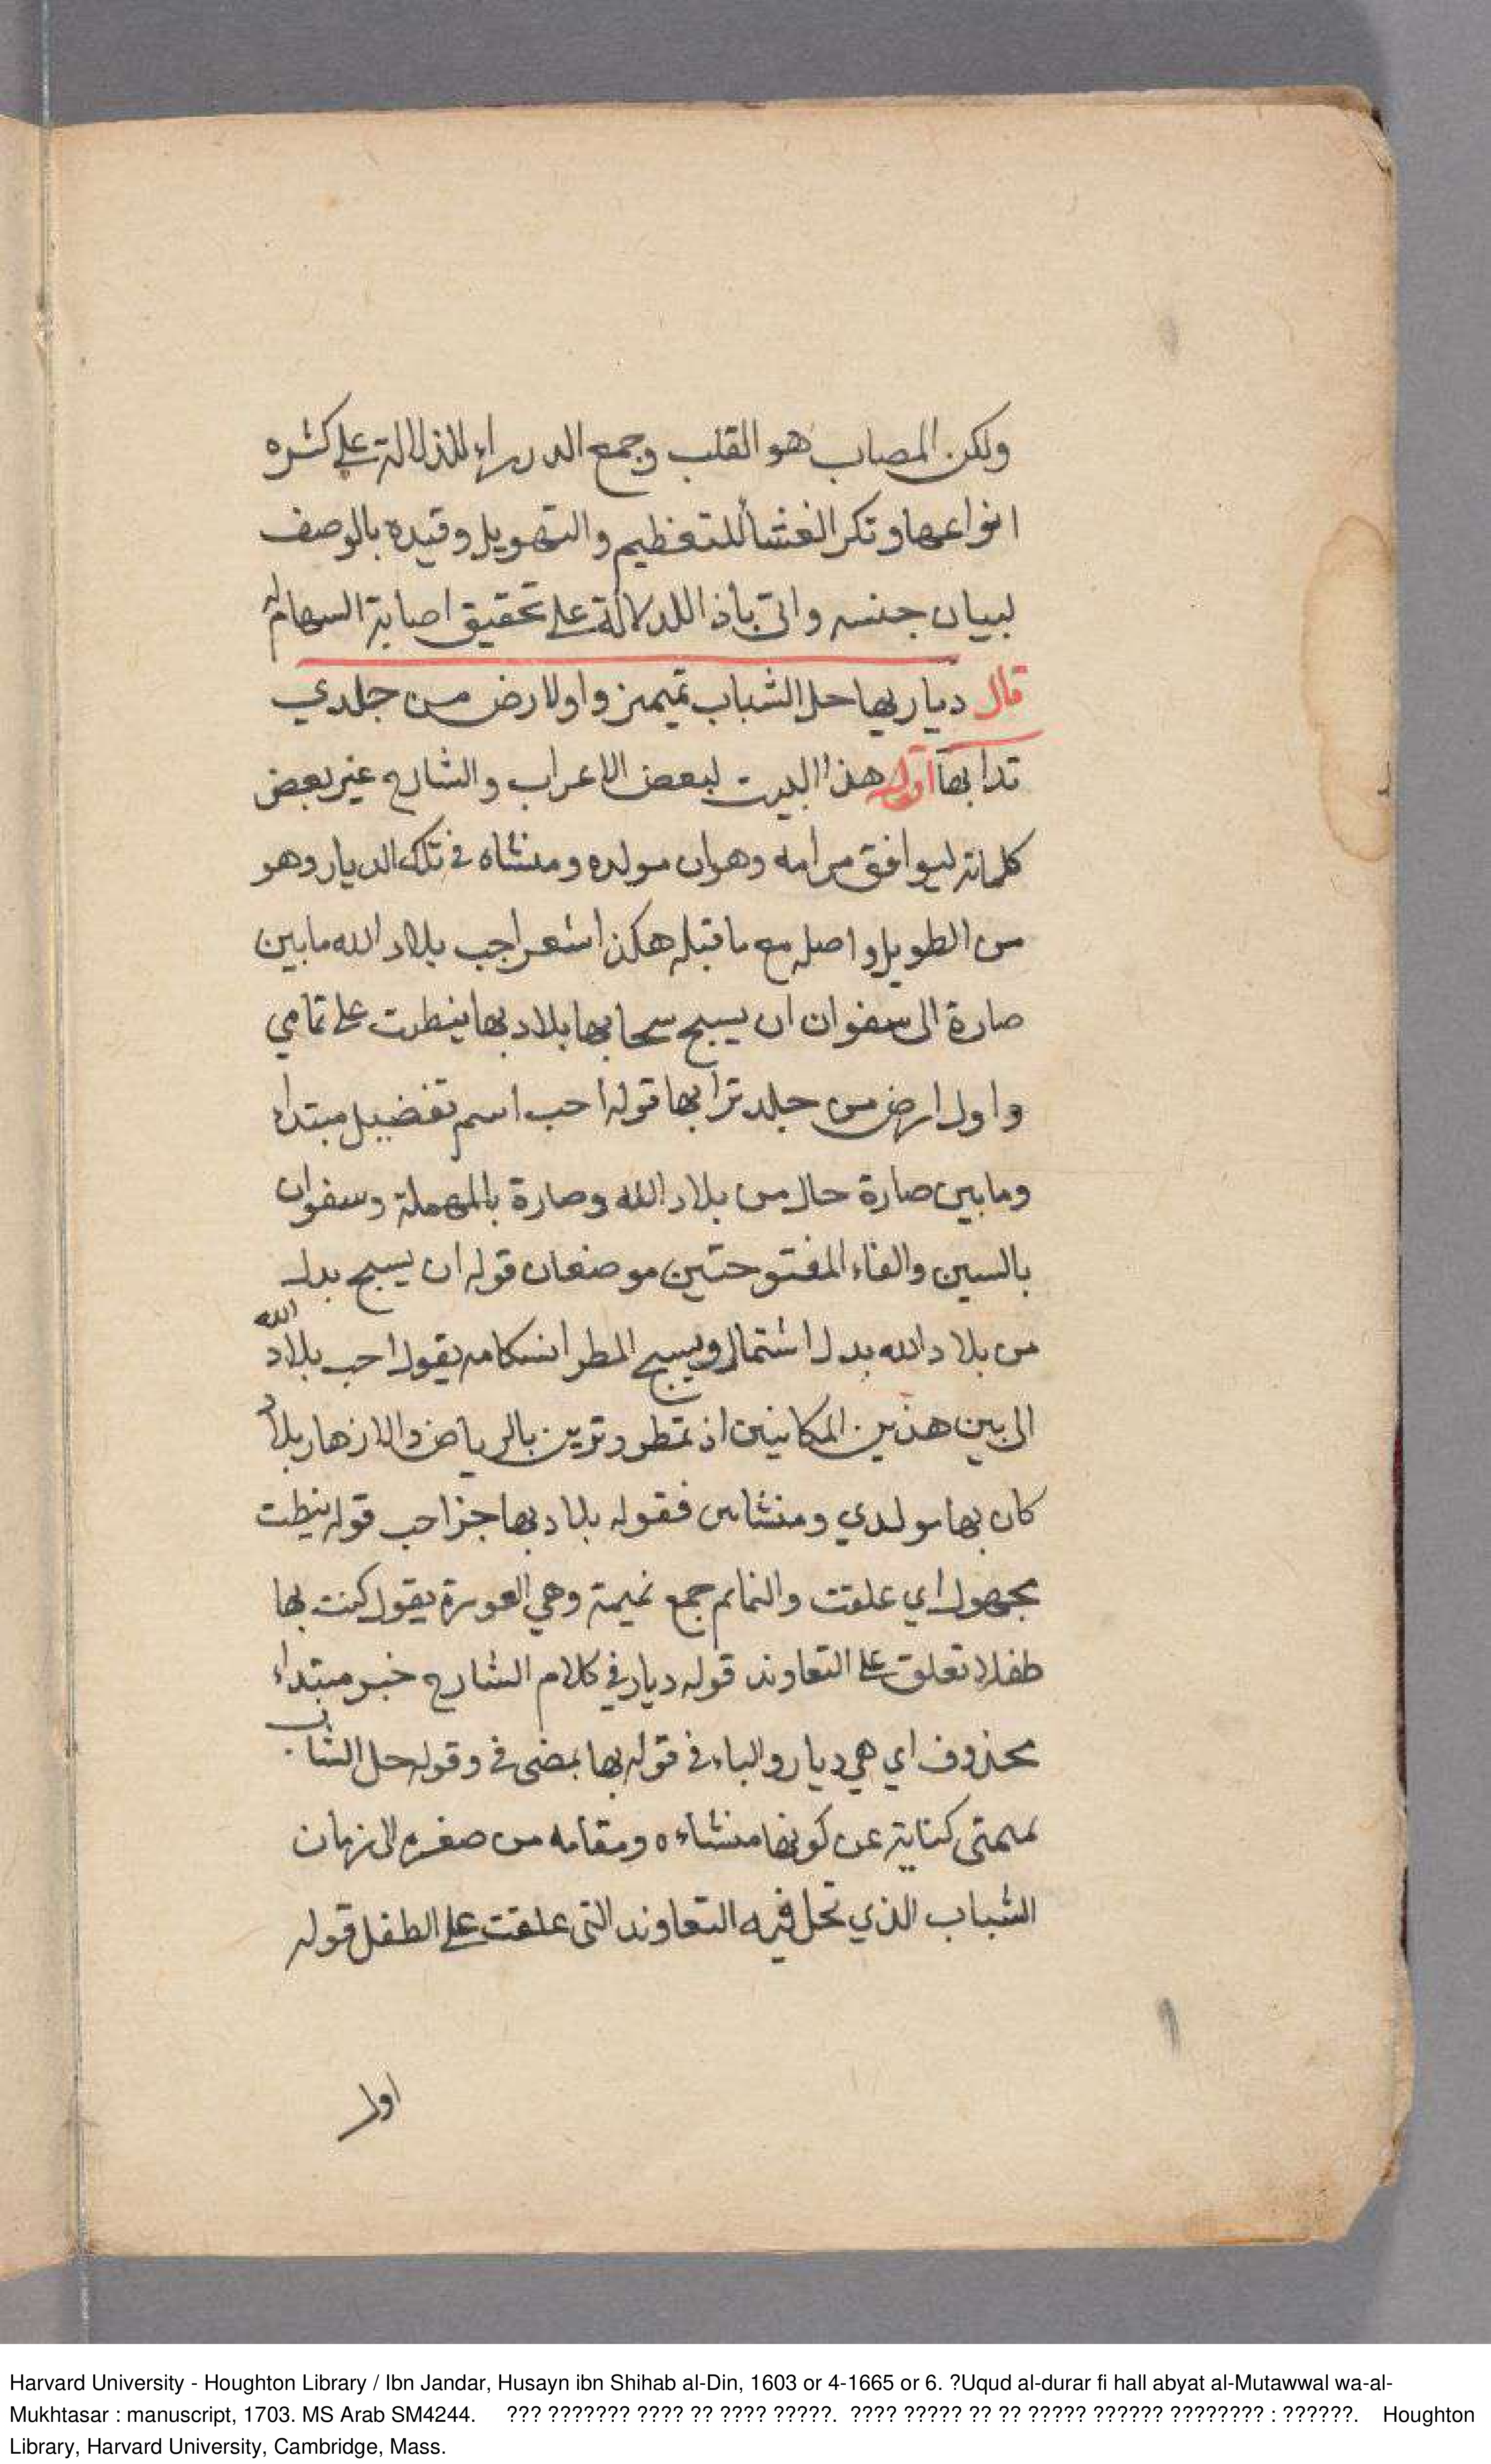 ولكن المصاب هو القلب وجمع الدرراء للدلالة على كثره
انواعها ونكر الغشأ للتعظيم والتهويل وقيده بالوصف
لبيان جنسه واتى باذا للدلالة على تحقيق اصابة السهام له
قال ديار بها حل الشباب تميمتي واول ارض من جلدي
ترابها اقول هذا البيت لبعض الاعراب والشارح غير بعض
كلماته ليوافق مرامه وهو ان مولده ومنشاه في تلك الديار وهو
من الطويل واصله مع ما قبله هكذا شعر احب بلاد الله ما بين
صارة الى سفوان ان يسبح سحابها بلاد بها ينطت على تمامي
واول ارض من جلد ترابها قوله احب اسم تفضيل مبتداء
وما بين صارة حال من بلاد الله وصارة بالمهملة وسفوان
بالسين والفاء المفتوحتين موضعان قوله ان يسبح بدل
من بلاد الله بدل اشتمال ويسبح المطر انسكامه يقول احب بلاد الله
الى بين هذين المكانين اذ تمطر وتزين بالرياض والازهار بلاد
كان بها مولدي ومنشاى فقوله بلاد بها خبر احب قوله ينطت
مجهول اي علقت والتمائم جمع تميمة وهي العوذة يقول كنت بها
طفلا تعلق على التعاويذ قوله ديار في كلام الشارح خبر مبتداء
محذوف اي هي ديار والباء في قوله بها بمعنى في وقوله حل الشباب
تميمتى كناية عن كونها منشاءه ومقامه من صغره الى زمان
الشباب الذي تحل فيه التعاويذ التى علقت على الطفل قوله
اول
Harvard University - Houghton Library / Ibn Jandar, Husayn ibn Shihab al-Din, 1603 or 4-1665 or 6. ?Uqud al-durar fi hall abyat al-Mutawwal wa-al-
Mukhtasar : manuscript, 1703. MS Arab SM4244. ??? ??????? ???? ?? ???? ?????. ???? ????? ?? ?? ????? ?????? ???????? : ??????. Houghton
Library, Harvard University, Cambridge, Mass.